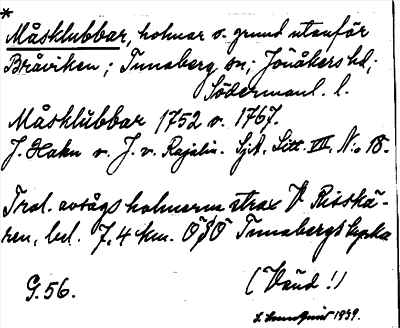 *
Måsklubbar, holmar o. grund utanför
Bråviken; Tunaberg sn; Jönåkers hd;
Södermanl. l.
Måsklubbar 1752 o. 1767.
J. Hahn o. J. v. Rajalin. Sjk. Litt. VII, N:o 18.
Trol. avsågs holmarna strax V Risskä-
ren, bel. 7,4 km. OSO Tunabergs kyrka
G. 56.
(Vänd!)
1939.